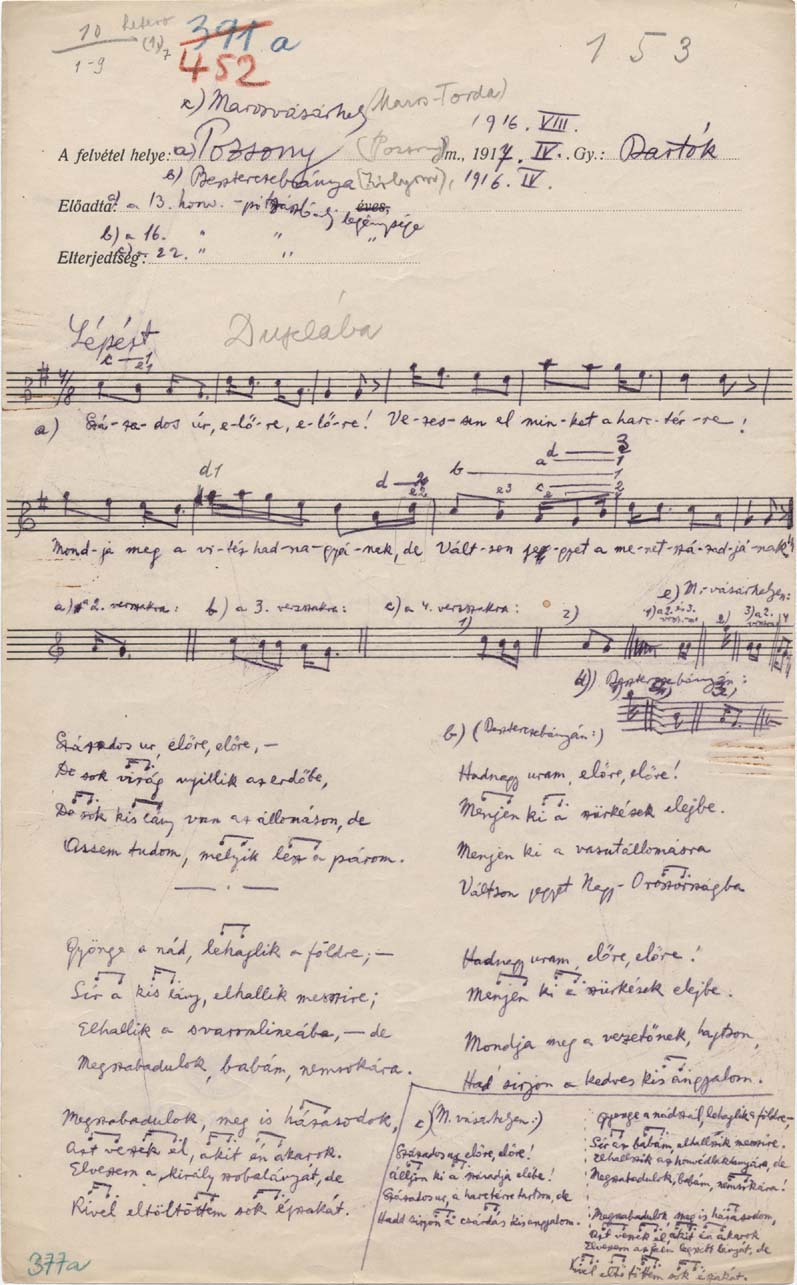 10 hetero
(1)7
1-9
371 a
452
153
c) Marosvásárhely (Maros-Torda)
1916. VIII.
A felvétel helye: a) Pozsony (Pozsony)m., 1917. IV. Gy.: Bartók
b) Beszterczebánya (Zólyom), 1916. IV.
Előadta: a) a 13. honv. éves,
legénysége
b) a 16. " " "
Elterjedtség: c) a 22. " "
Lépést
Duklába
a) Szá-za-dos úr, e-lő-re, e-lő-re! Ve-zes-sen el min-ket a harc-tér-re!
d1
Mond-ja meg a vi-téz had-na-gyá-nek, de Vált-son jegy-gyet a me-net-szá-zad-já-nak!
a) a 2. versszakra: b) a 3. versszakra: c) a 4. versszakra: 1) 2)
e) M.-vásárhelyen:
d) Beszterczebányán:
Százados ur, előre, előre, —
De sok virág nyitlik az erdőbe,
De sok kis lány van az állomáson, de
Assem tudom, melyik lesz a párom.
Gyönge a nád, lehaglik a földre; —
Sír a kis lány, elhallik messzire;
Elhallik a svarmlineába, — de
Megszabadulok, babám, nemsokára.
Megszabadulok, meg is házasodok,
Azt veszek el, akit én akarok.
Elveszem a király szobalányát, de
Kivel eltöltöttem sok éjszakát.
b) (Beszterczebányán:)
Hadnagy uram, előre, előre!
Menjen ki a szürkések elejbe.
Menjen ki a vasutállomásra
Váltson jegyet Nagy-Oroszországba
Hadnagy uram, előre, előre!
Menjen ki a szürkések elejbe.
Mondja meg a vezetőnek, hajtson,
Had' sirjon a kedves kis angyalom.
c) (M. vásárhelyen:)
Százados ur, előre, előre!
Álljon ki a századja elébe!
Százados ur, a harctérre tartson, de
Hadd sirjon a csárdás kis angyalom.
Gyenge a nádszál, lehaglik a földre—,
Sír az babám, elhallszik messzire.
Elhallszik a honvédlaktanyára, de
Megszabadulok, babám, nemsokára!
Megszabadulok, meg is házasodom,
Azt veszek el, akit én akarok
Elveszem a falu legszebb lányát, de
Kivel eltöltöttem sok éjszakát.
377a